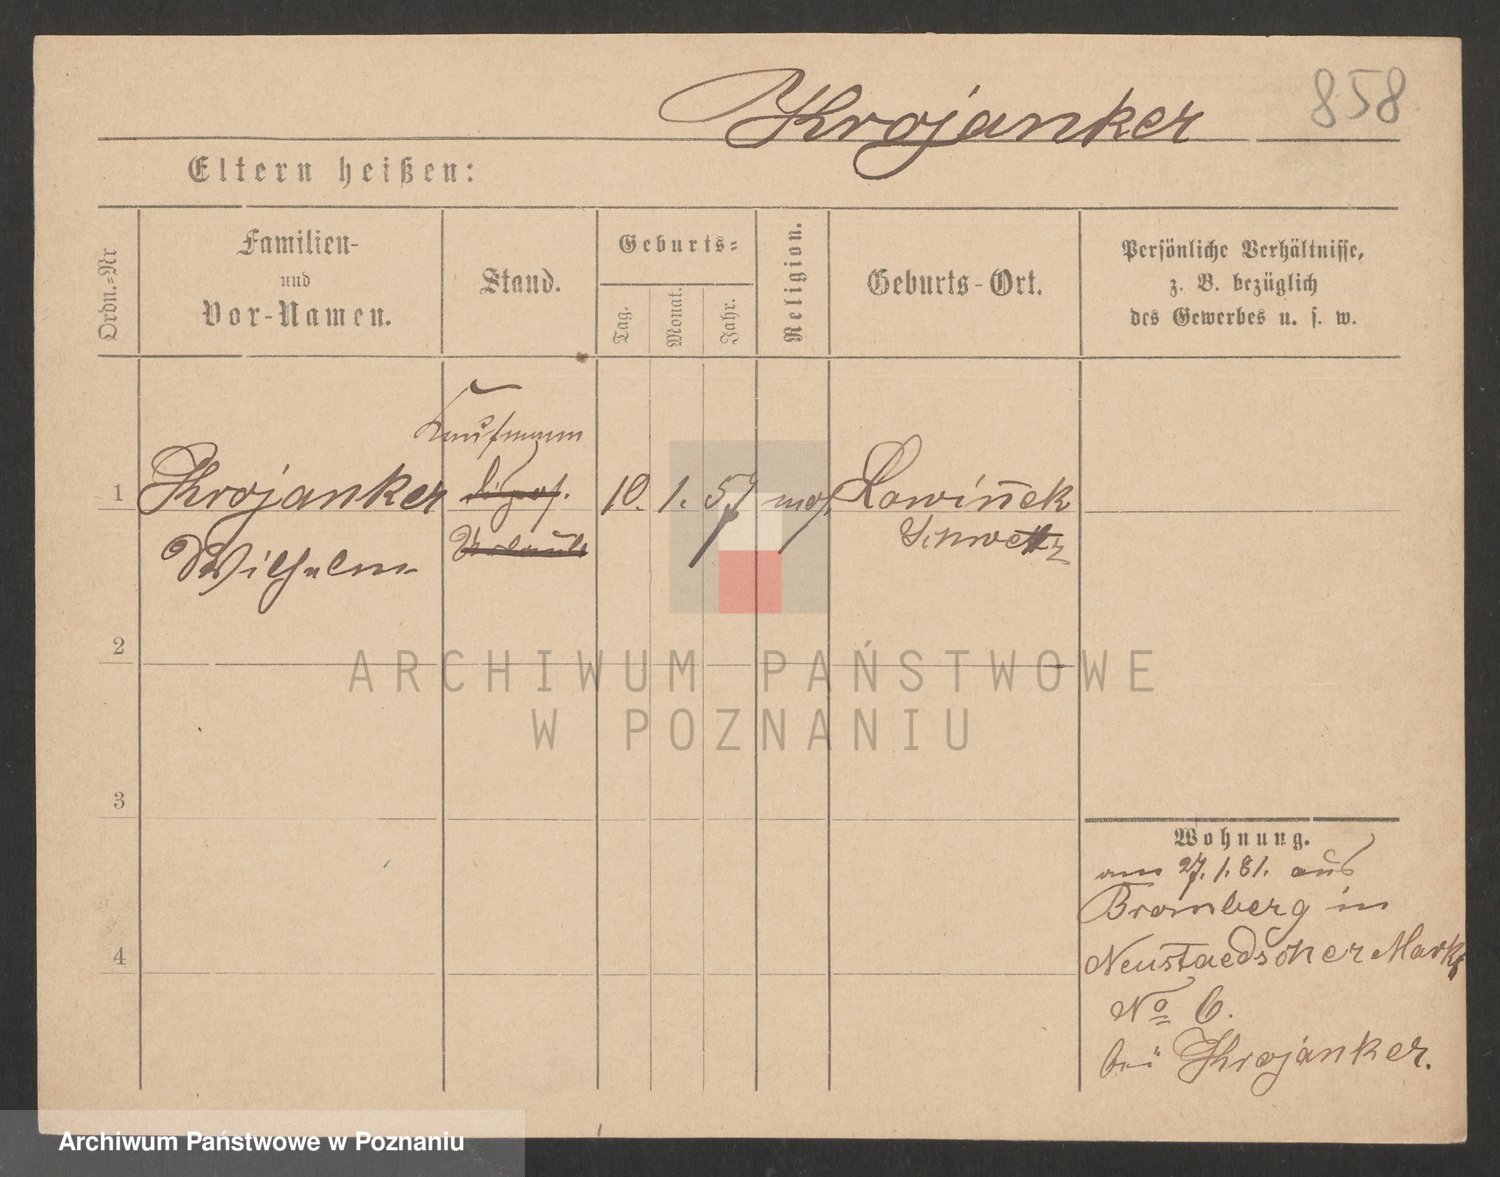 Krojanker 858
Eltern heißen:
Ordn.-Nr
Familien-
und
Vor-Namen.
Stand.
Geburts-
Tag.
Monat.
Jahr.
Religion.
Geburts-Ort.
Persönliche Verhältnisse,
z. B. bezüglich
des Gewerbes u. s. w.
Kaufmann
1 Krojanker 10. 1. 57 mos. Lowinnek
Wilhelm
Schwetz
2
3
4
Wohnung.
am 27.1.81. aus
Bromberg in
Neustaedscher Markt
No 6.
bei Krojanker.
ARCHIWUM PAŃSTWOWE
W POZNANIU
Archiwum Państwowe w Poznaniu